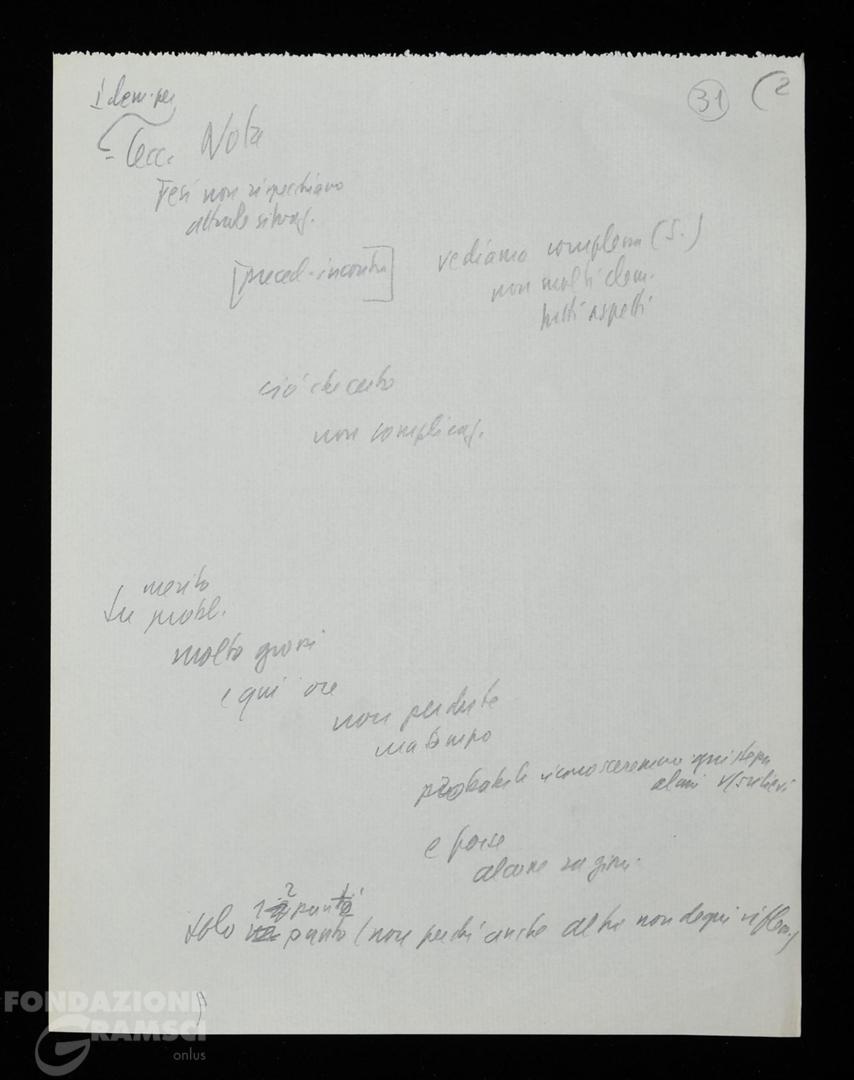 Idem per
31 (2
- Cecc. Nota
Tesi non rispecchiano
attuale situaz.
[preced. incontri]
vediamo compless (S.)
non molti elem.
tutti aspetti
ciò che certo
non complicaz.
merito
In probl.
molto gravi
e qui ore
non perdute
ma tempo
probabile riconosceremo
alcuni rilievi
e forse
alcune ragioni.
2
solo punto (non perché anche altri non degni rifless.)
FONDAZIONE
GRAMSCI
onlus